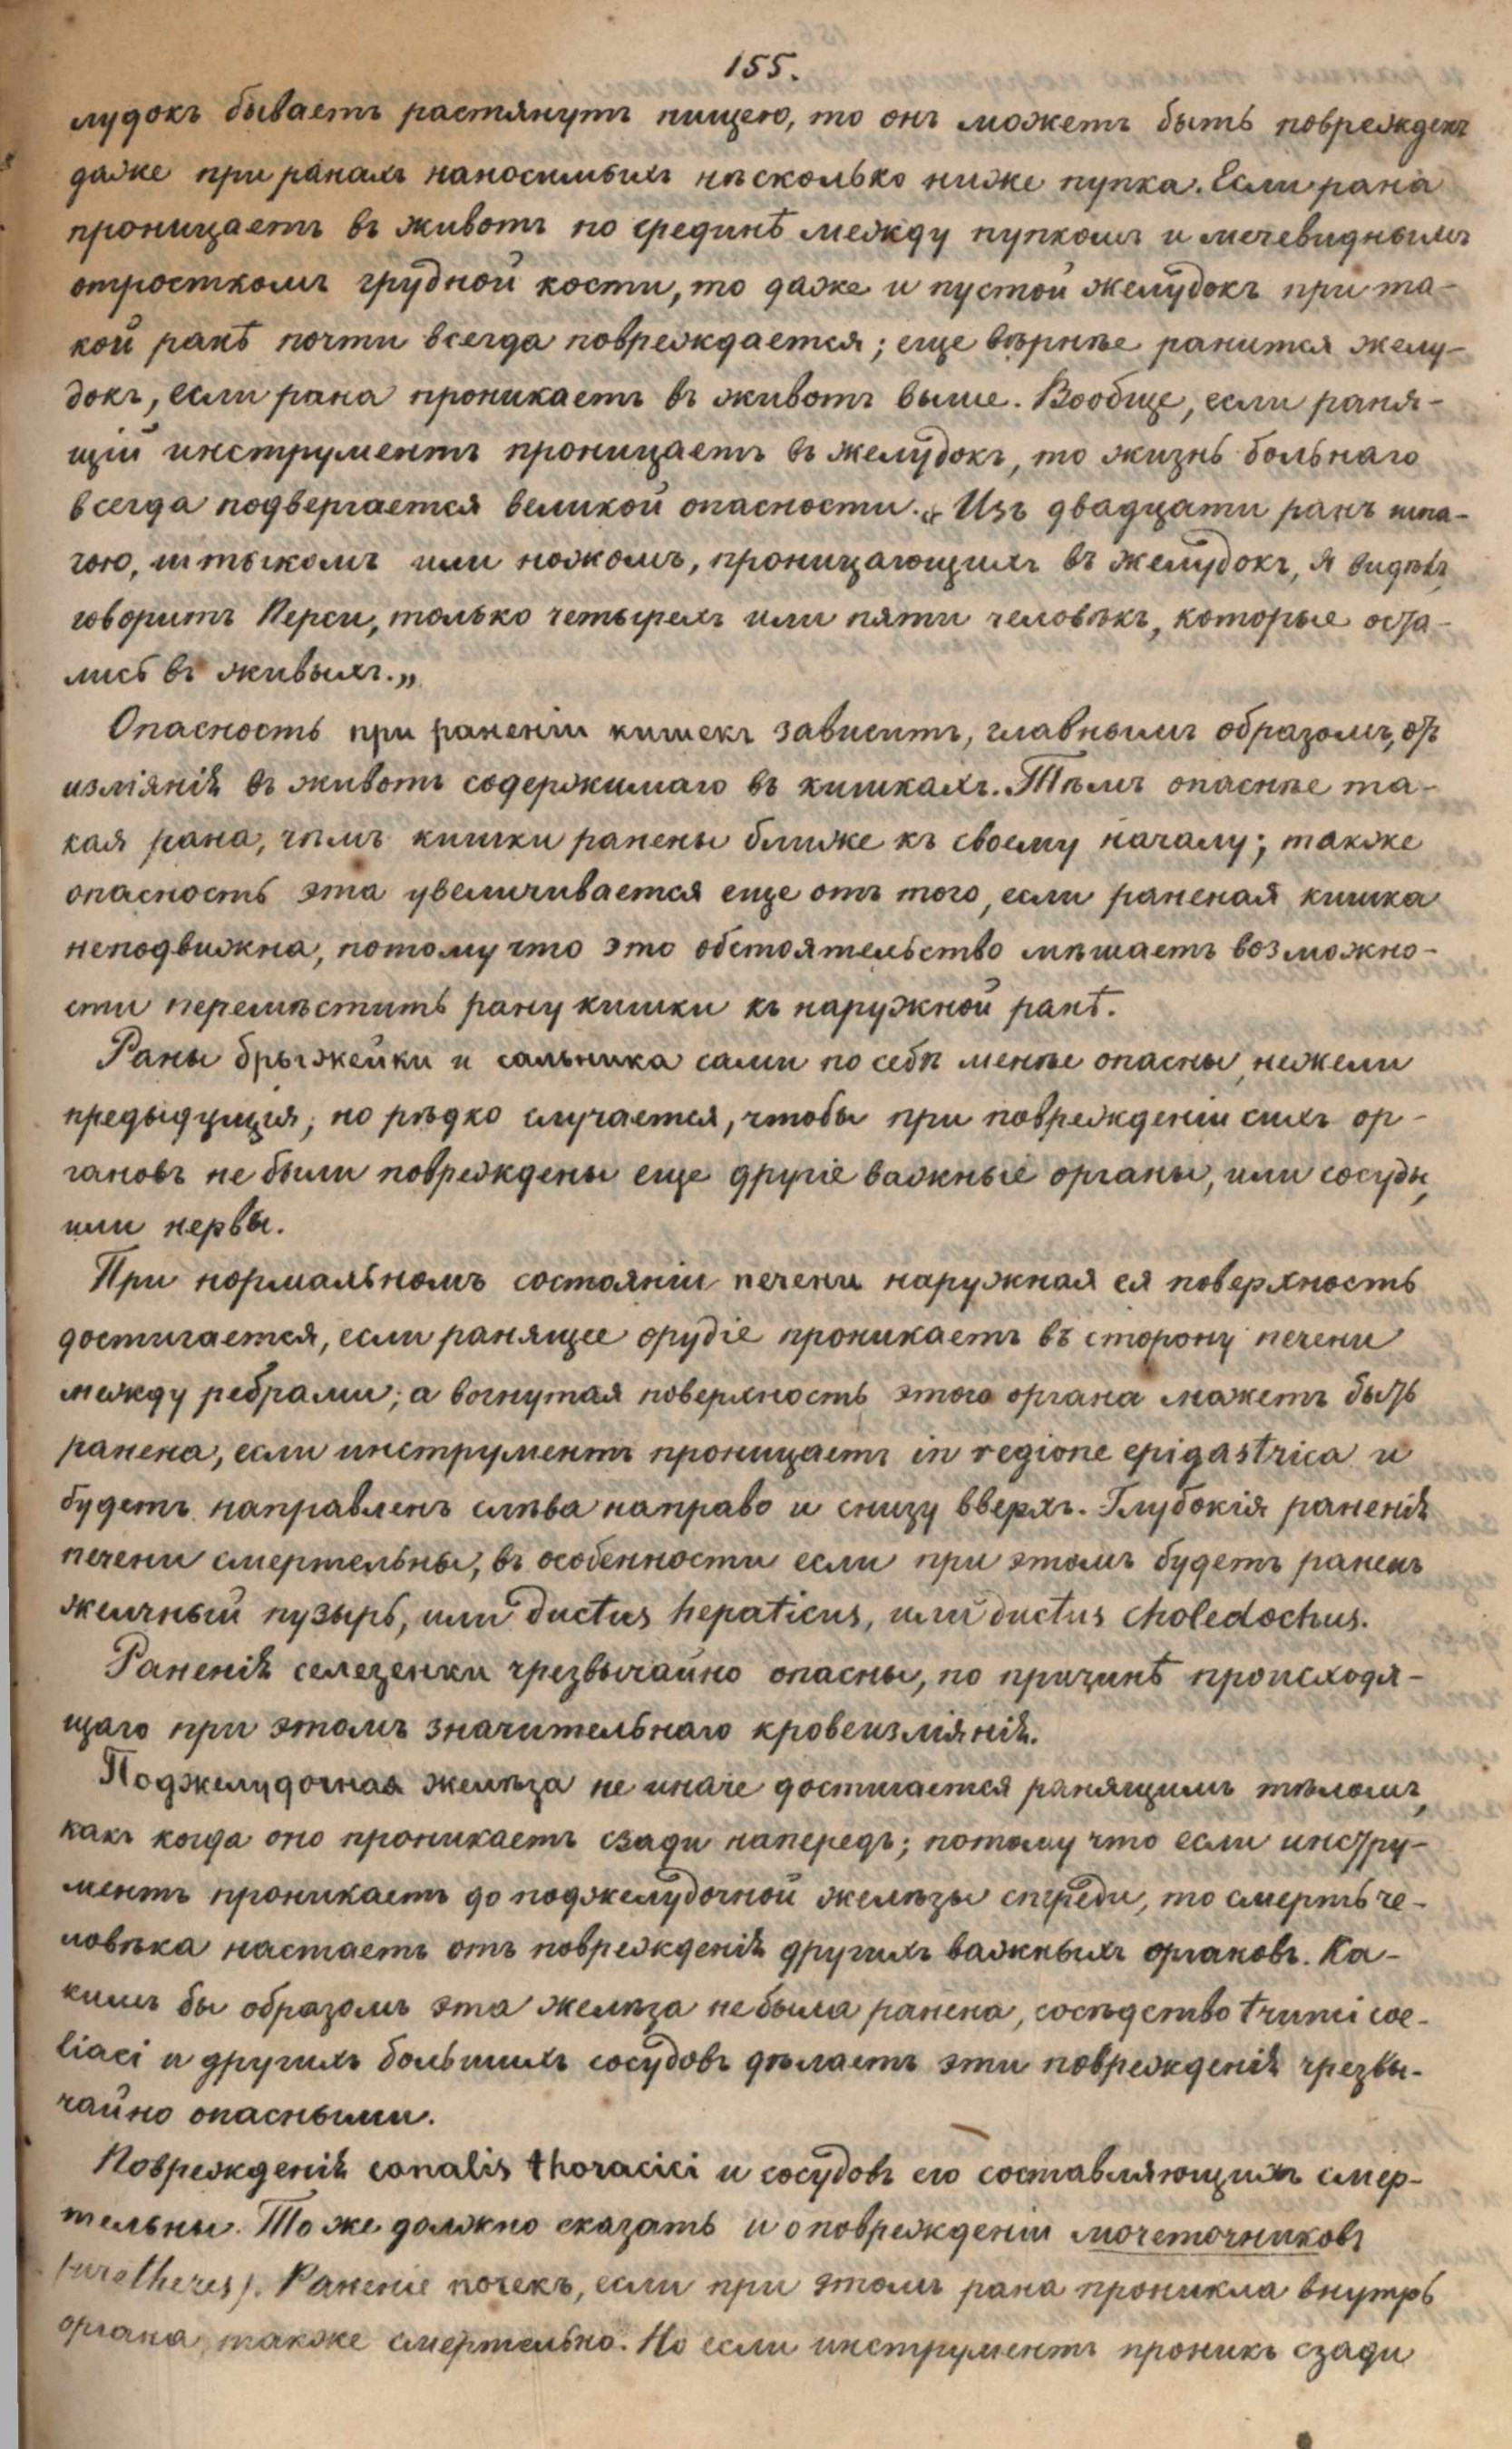 155.
лудокъ бываетъ растянутъ пищею, то онъ можетъ быть поврежденъ
даже при ранахъ наносимыхъ нѣсколько ниже пупка. Если рана
проницаетъ въ животъ по срединѣ между пупкомъ и мечевиднымъ
отросткомъ грудной кости, то даже и пустой желудокъ при та-
кой ранѣ почти всегда повреждается; еще вѣрнѣе ранится желу-
докъ, если рана проникаетъ въ животъ выше. Вообще, если раня-
щій инструментъ проницаетъ въ желудокъ, то жизнь больнаго
всегда подвергается великой опасности. „Изъ двадцати ранъ шпа-
гою, штыкомъ или ножомъ, проницающихъ въ желудокъ, я видѣлъ,
говоритъ Перси, только четырехъ или пяти человѣкъ, которые оста-
лись въ живыхъ.„
Опасность при раненіи кишекъ зависитъ, главнымъ образомъ, отъ
изліянія въ животъ содержимаго въ кишкахъ. Тѣмъ опаснѣе та-
кая рана, чѣмъ кишки ранены ближе къ своему началу; также
опасность эта увеличивается еще отъ того, если раненая кишка
неподвижна, потому что это обстоятельство мѣшаетъ возможно-
сти перемѣстить рану кишки къ наружной ранѣ.
Раны брыжейки и сальника сами по себѣ менѣе опасны, нежели
предыдущія; но рѣдко случается, чтобы при поврежденіи сихъ ор-
гановъ не были повреждены еще другіе важные органы, или сосуды,
или нервы.
При нормальномъ состояніи печени наружная ея поверхность
достигается, если ранящее орудіе проникаетъ въ сторону печени
между ребрами; а вогнутая поверхность этого органа можетъ быть
ранена, если инструментъ проницаетъ in regione epigastrica и
будетъ направленъ слѣва направо и снизу вверхъ. Глубокія раненія
печени смертельны, въ особенности если при этомъ будетъ раненъ
желчный пузырь, или ductus hepaticus, или ductus choledochus.
Раненія селезенки чрезвычайно опасны, по причинѣ происходя-
щаго при этомъ значительнаго кровеизліянія.
Поджелудочная желѣза не иначе достигается ранящимъ тѣломъ,
какъ когда оно проникаетъ сзади напередъ; потому что если инстру-
ментъ проникаетъ до поджелудочной желѣзы спереди, то смерть че-
ловѣка настаетъ отъ поврежденія другихъ важныхъ органовъ. Ка-
кимъ бы образомъ эта желѣза не была ранена, сосѣдство trunci coe-
liaci и другихъ большихъ сосудовъ дѣлаетъ эти поврежденія чрезвы-
чайно опасными.
Поврежденія canalis thoracici и сосудовъ его составляющихъ смер-
тельны. То же должно сказать и о поврежденіи мочеточниковъ
(uretheres). Раненіе почекъ, если при этомъ рана проникла внутрь
органа, также смертельно. Но если инструментъ проникъ сзади